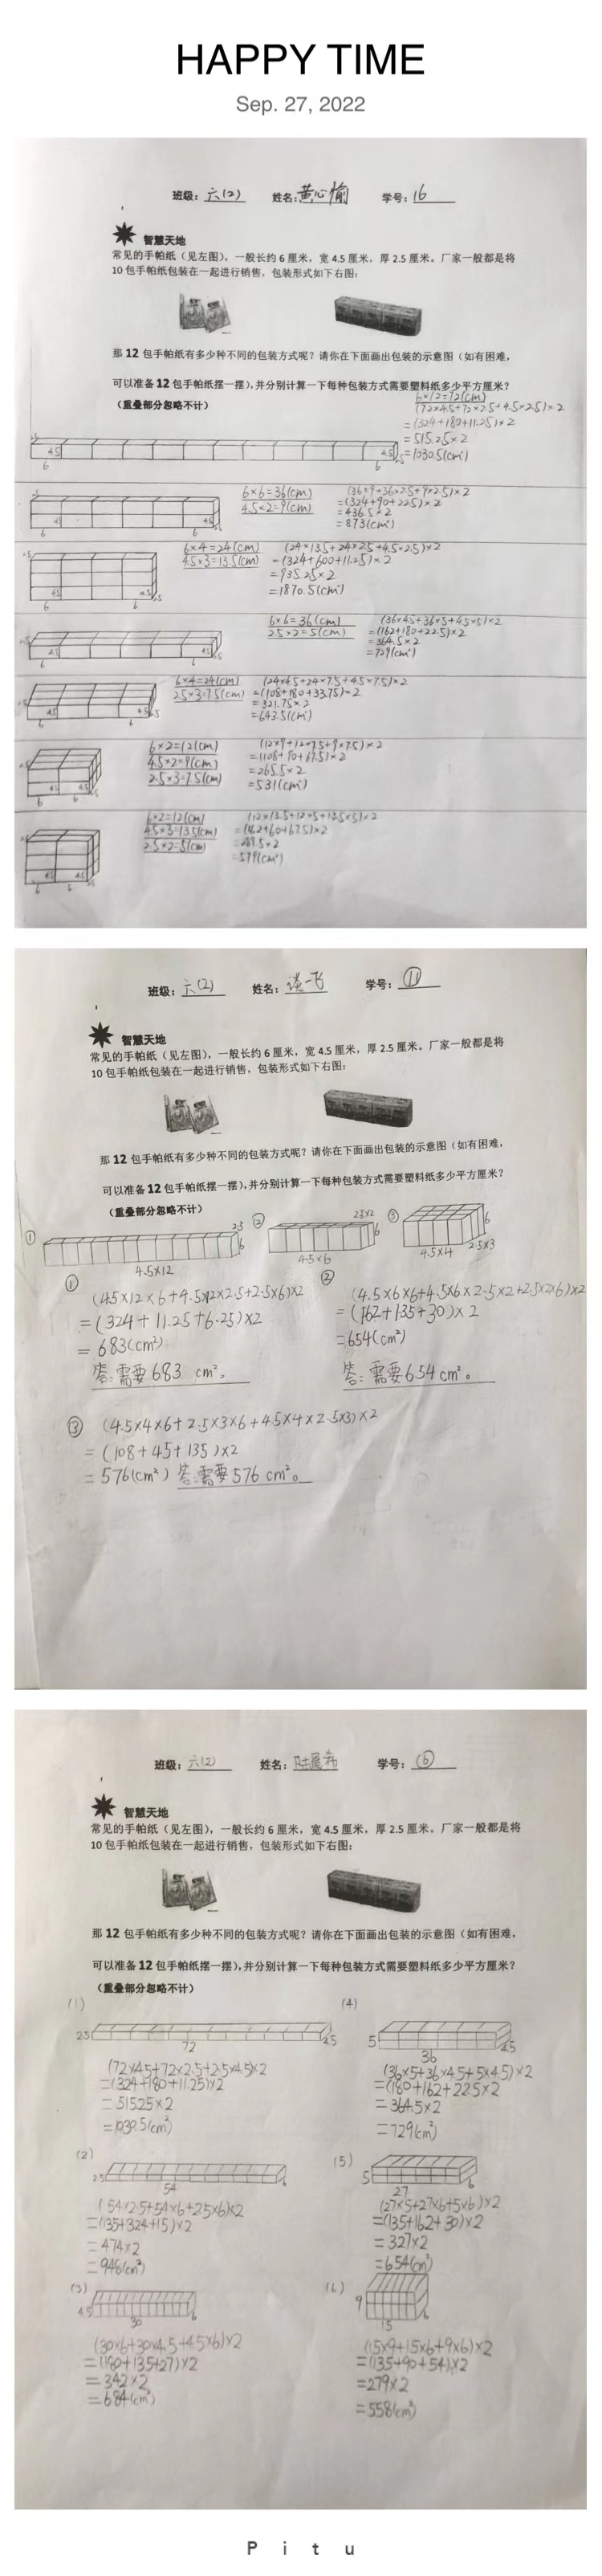 HAPPY TIME
Sep. 27, 2022
班级：六(2) 姓名：黄心愉 学号：16
智慧天地
常见的手帕纸（见左图），一般长约 6 厘米，宽 4.5 厘米，厚 2.5 厘米。厂家一般都是将
10 包手帕纸包装在一起进行销售，包装形式如下右图：
那 12 包手帕纸有多少种不同的包装方式呢？请你在下面画出包装的示意图（如有困难，
可以准备 12 包手帕纸摆一摆），并分别计算一下每种包装方式需要塑料纸多少平方厘米？
（重叠部分忽略不计）
6×12=72(cm)
(72×4.5+72×2.5+4.5×2.5)×2
=(324+180+11.25)×2
=515.25×2
=1030.5(cm²)
6×6=36(cm)
4.5×2=9(cm)
(36×9+36×2.5+9×2.5)×2
=(324+90+22.5)×2
=436.5×2
=873(cm²)
6×4=24(cm)
4.5×3=13.5(cm)
(24×13.5+24×2.5+4.5×2.5)×2
=(324+600+11.25)×2
=935.25×2
=1870.5(cm²)
6×6=36(cm)
2.5×2=5(cm)
(36×4.5+36×5+4.5×5)×2
=(162+180+22.5)×2
=364.5×2
=729(cm²)
6×4=24(cm)
2.5×3=7.5(cm)
(24×4.5+24×7.5+4.5×7.5)×2
=(108+180+33.75)×2
=321.75×2
=643.5(cm²)
6×2=12(cm)
4.5×2=9(cm)
2.5×3=7.5(cm)
(12×9+12×7.5+9×7.5)×2
=265.5×2
=531(cm²)
6×2=12(cm)
4.5×3=13.5(cm)
2.5×2=5(cm)
(12×13.5+12×5+13.5×5)×2
=(162+60+67.5)×2
=289.5×2
=579(cm²)
班级：六(2) 姓名：谈一飞 学号：⑪
智慧天地
常见的手帕纸（见左图），一般长约 6 厘米，宽 4.5 厘米，厚 2.5 厘米。厂家一般都是将
10 包手帕纸包装在一起进行销售，包装形式如下右图：
那 12 包手帕纸有多少种不同的包装方式呢？请你在下面画出包装的示意图（如有困难，
可以准备 12 包手帕纸摆一摆），并分别计算一下每种包装方式需要塑料纸多少平方厘米？
（重叠部分忽略不计）
① 2.5 6 4.5×12
② 2.5×2 6 4.5×6
③ 6 4.5×4 2.5×3
①
(4.5×12×6+4.5×12×2.5+2.5×6)×2
=(324+11.25+6.25)×2
=683(cm²)
答：需要683 cm²。
②
(4.5×6×6+4.5×6×2.5×2+2.5×2×6)×2
=(162+135+30)×2
=654(cm²)
答：需要654 cm²。
③ (4.5×4×6+2.5×3×6+4.5×4×2.5×3)×2
=(108+45+135)×2
=576(cm²) 答：需要576 cm²。
班级：六(2) 姓名：陆晨希 学号：⑥
智慧天地
常见的手帕纸（见左图），一般长约 6 厘米，宽 4.5 厘米，厚 2.5 厘米。厂家一般都是将
10 包手帕纸包装在一起进行销售，包装形式如下右图：
那 12 包手帕纸有多少种不同的包装方式呢？请你在下面画出包装的示意图（如有困难，
可以准备 12 包手帕纸摆一摆），并分别计算一下每种包装方式需要塑料纸多少平方厘米？
（重叠部分忽略不计）
(1)
2.5 72 4.5
(72×4.5+72×2.5+2.5×4.5)×2
=(324+180+11.25)×2
=515.25×2
=1030.5(cm²)
(4)
5 36 4.5
(36×5+36×4.5+5×4.5)×2
=(180+162+22.5)×2
=364.5×2
=729(cm²)
(2)
2.5 54 6
(54×2.5+54×6+2.5×6)×2
=(135+324+15)×2
=474×2
=948(cm²)
(5)
5 27 6
(27×5+27×6+5×6)×2
=(135+162+30)×2
=327×2
=654(cm²)
(3)
4.5 30 6
(30×6+30×4.5+4.5×6)×2
=(180+135+27)×2
=342×2
=684(cm²)
(6)
9 15 6
(15×9+15×6+9×6)×2
=(135+90+54)×2
=279×2
=558(cm²)
Pitu